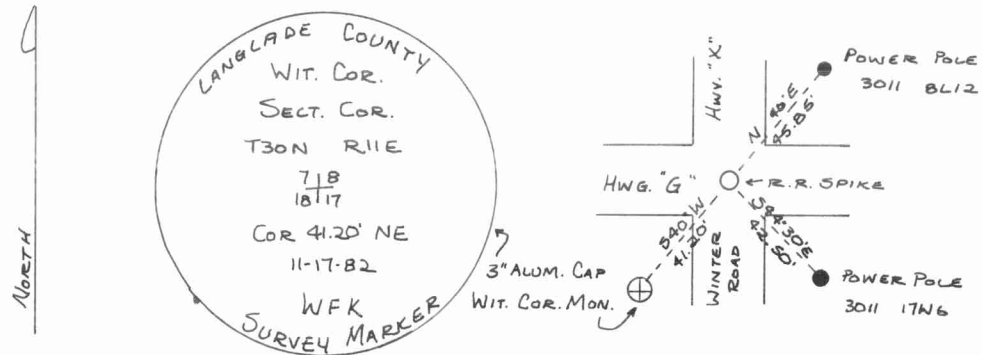 NORTH
LANGLADE COUNTY
WIT. COR.
SECT. COR.
T30N R11E
7 8
18 17
COR 41.20' NE
11-17-82
WFK
SURVEY MARKER
3" ALUM. CAP
WIT. COR. MON.
HWY. "X"
HWG. "G"
WINTER
ROAD
R.R. SPIKE
N 40° E
45.85'
S40° W
41.20'
S44°30'E
42.50'
POWER POLE
3011 8L12
POWER POLE
3011 17N6